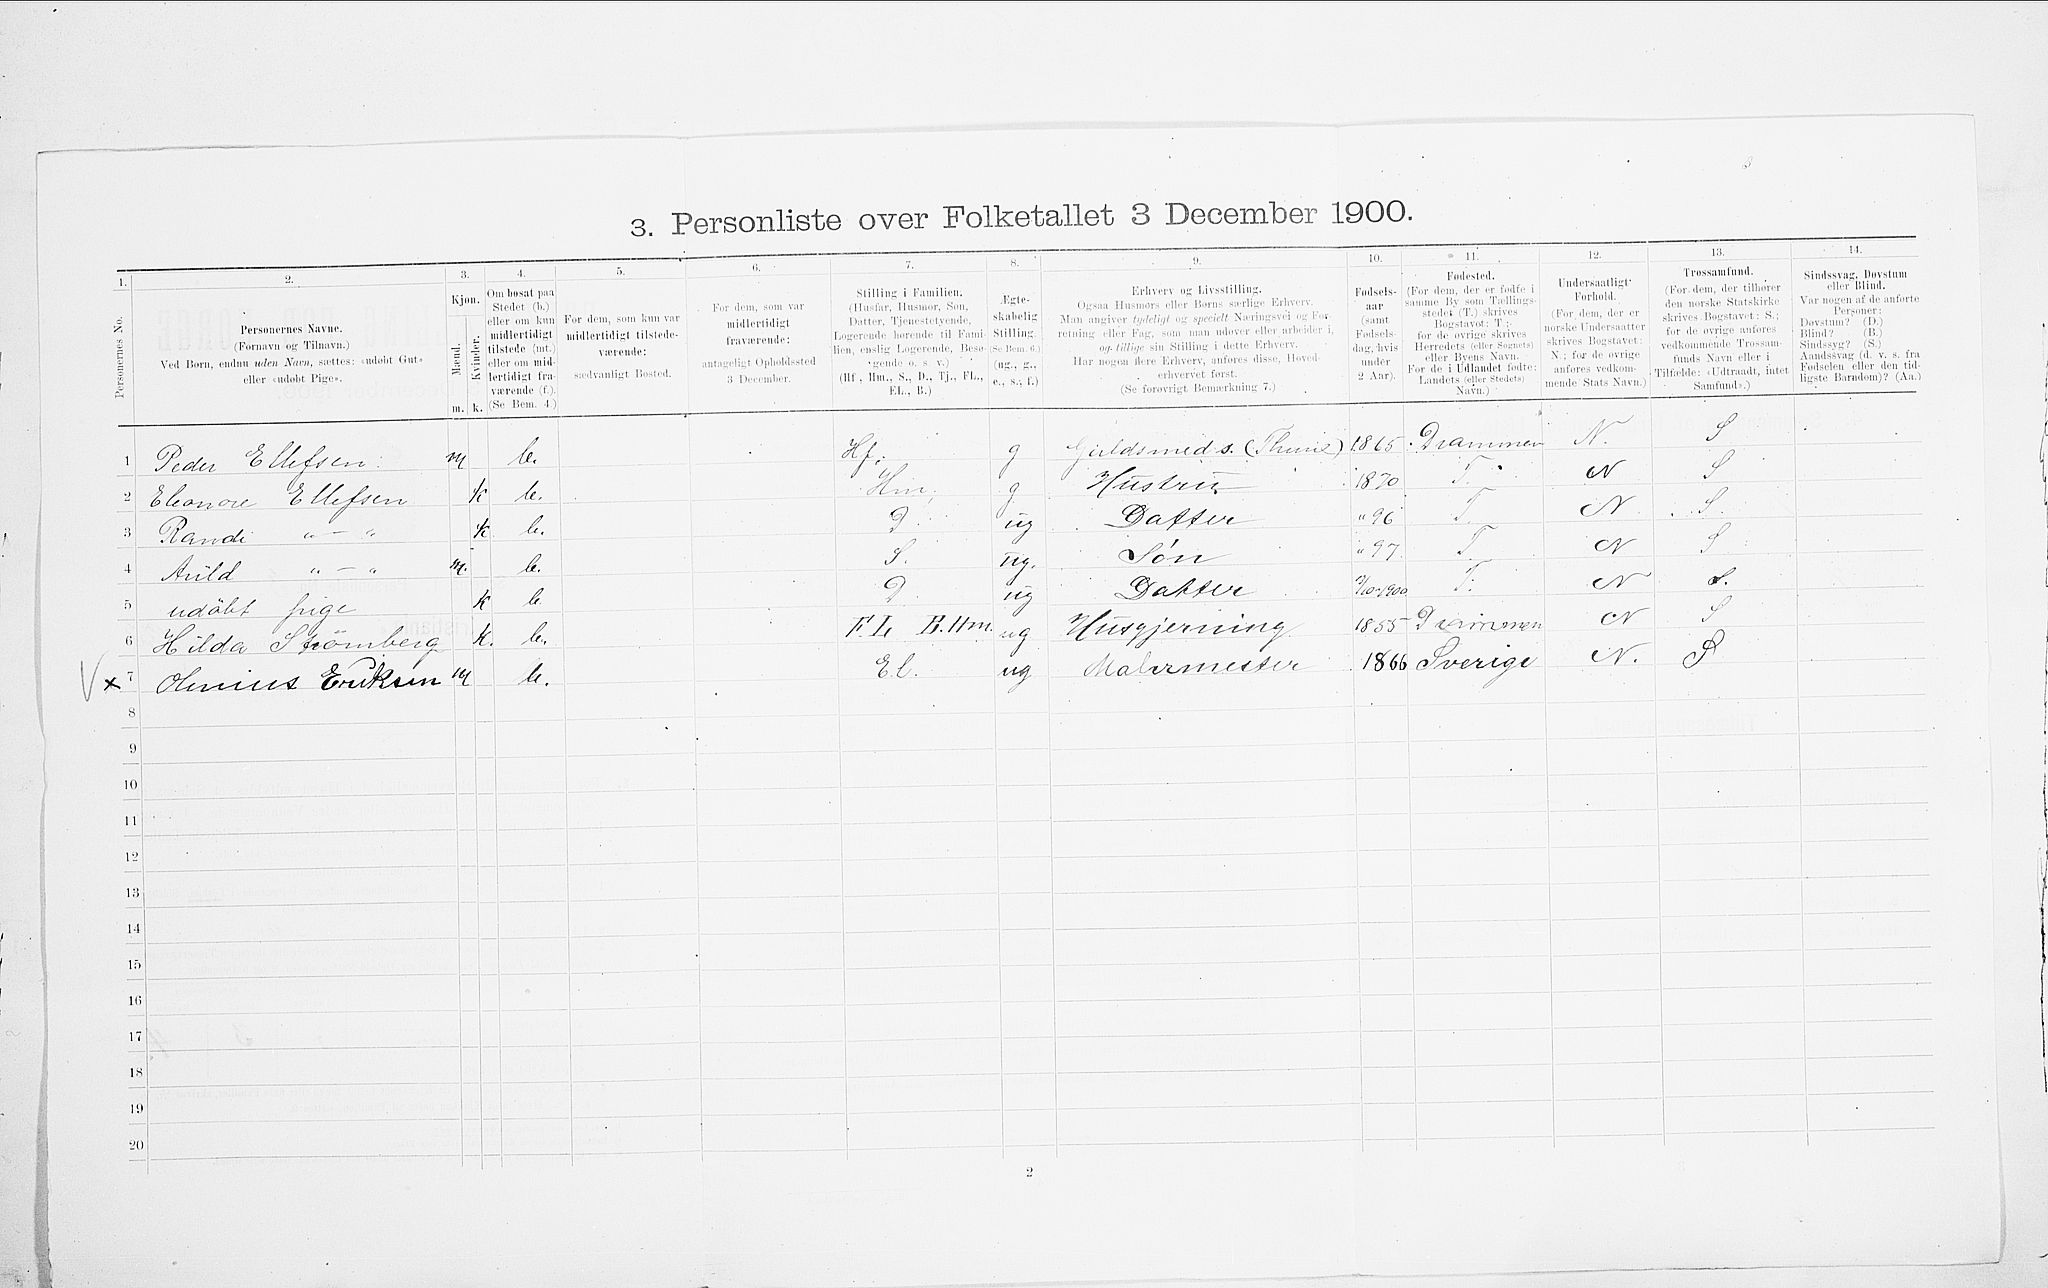 3
3. Personliste over Folketallet 3 December 1900.
1. 2. 3. 4. 5. 6. 7. 8. 9. 10. 11. 12. 13. 14.
Personernes No.
Personernes Navne.
(Fornavn og Tilnavn.)
Ved Børn, endnu uden Navn, sættes: «udøbt Gut»
eller «udøbt Pige».
Kjøn.
Mænd.
Kvinder.
m. k.
Om bosat paa
Stedet (b.)
eller om kun
midlertidigt
tilstede (mt.)
eller om mid-
lertidigt fra-
værende (f.).
(Se Bem. 4.)
For dem, som kun var
midlertidigt tilstede-
værende:
sædvanligt Bosted.
For dem, som var
midlertidigt
fraværende:
antageligt Opholdssted
3 December.
Stilling i Familien.
(Husfar, Husmor, Søn,
Datter, Tjenestetyende,
Logerende hørende til Fami-
lien, enslig Logerende, Besø-
gende o. s. v.)
(Hf., Hm., S., D., Tj., FL.,
EL., B.)
Ægte-
skabelig
Stilling.
(Se Bem. 6.)
(ug., g.,
e., s., f.)
Erhverv og Livsstilling.
Ogsaa Husmors eller Børns særlige Erhverv.
Man angiver tydeligt og specielt Næringsvei og For-
retning eller Fag, som man udøver eller arbeider i,
og tillige sin Stilling i dette Erhverv.
Har nogen flere Erhverv, anføres disse, Hoved-
erhvervet først.
(Se forøvrigt Bemærkning 7.)
Fødsels-
aar
(samt
Fødsels-
dag, hvis
under
2 Aar).
Fødested.
(For dem, der er fødte i
samme By som Tællings-
stedet (T.) skrives
Bogstavet: T.;
for de øvrige skrives
Herredets (eller Sognets)
eller Byens Navn.
For de i Udlandet fødte:
Landets (eller Stedets)
Navn.)
Undersaatligt
Forhold.
(For dem, der er
norske Undersaatter
skrives Bogstavet:
N.; for de øvrige
anføres vedkom-
mende Stats Navn.)
Trossamfund.
(For dem, der tilhører
den norske Statskirke
skrives Bogstavet: S.;
for de øvrige anføres
vedkommende Trossam-
funds Navn eller i
Tilfælde: «Udtraadt, intet
Samfund».)
Sindssvag, Døvstum
eller Blind.
Var nogen af de anførte
Personer:
Døvstum? (D.)
Blind? (B.)
Sindssyg? (S.)
Aandssvag (d. v. s. fra
Fødselen eller den tid-
ligste Barndom)? (Aa.)
1 Peder Ellefsen m b. Hf. g Guldsmed s. (Thune) 1865 Drammen N. S
2 Eleonore Ellefsen k b. Hm. g Hustru 1870 T. N S
3 Randi " — " k b. D. ug Datter " 96 T. N S.
4 Arild " — " m. b. S. ug. Søn " 97 T. N S
5 udöbt pige k b D. ug Datter /10-1900 T. N S.
6 Hilda Strömberg k. b. F L B. Hm. ug Husgjerning 1855 Drammen N S
V x 7 Olenius Eriksen m b. E L. ug Malermester 1866 Sverige N. S
8
9
10
11
12
13
14
15
16
17
18
19
20
2